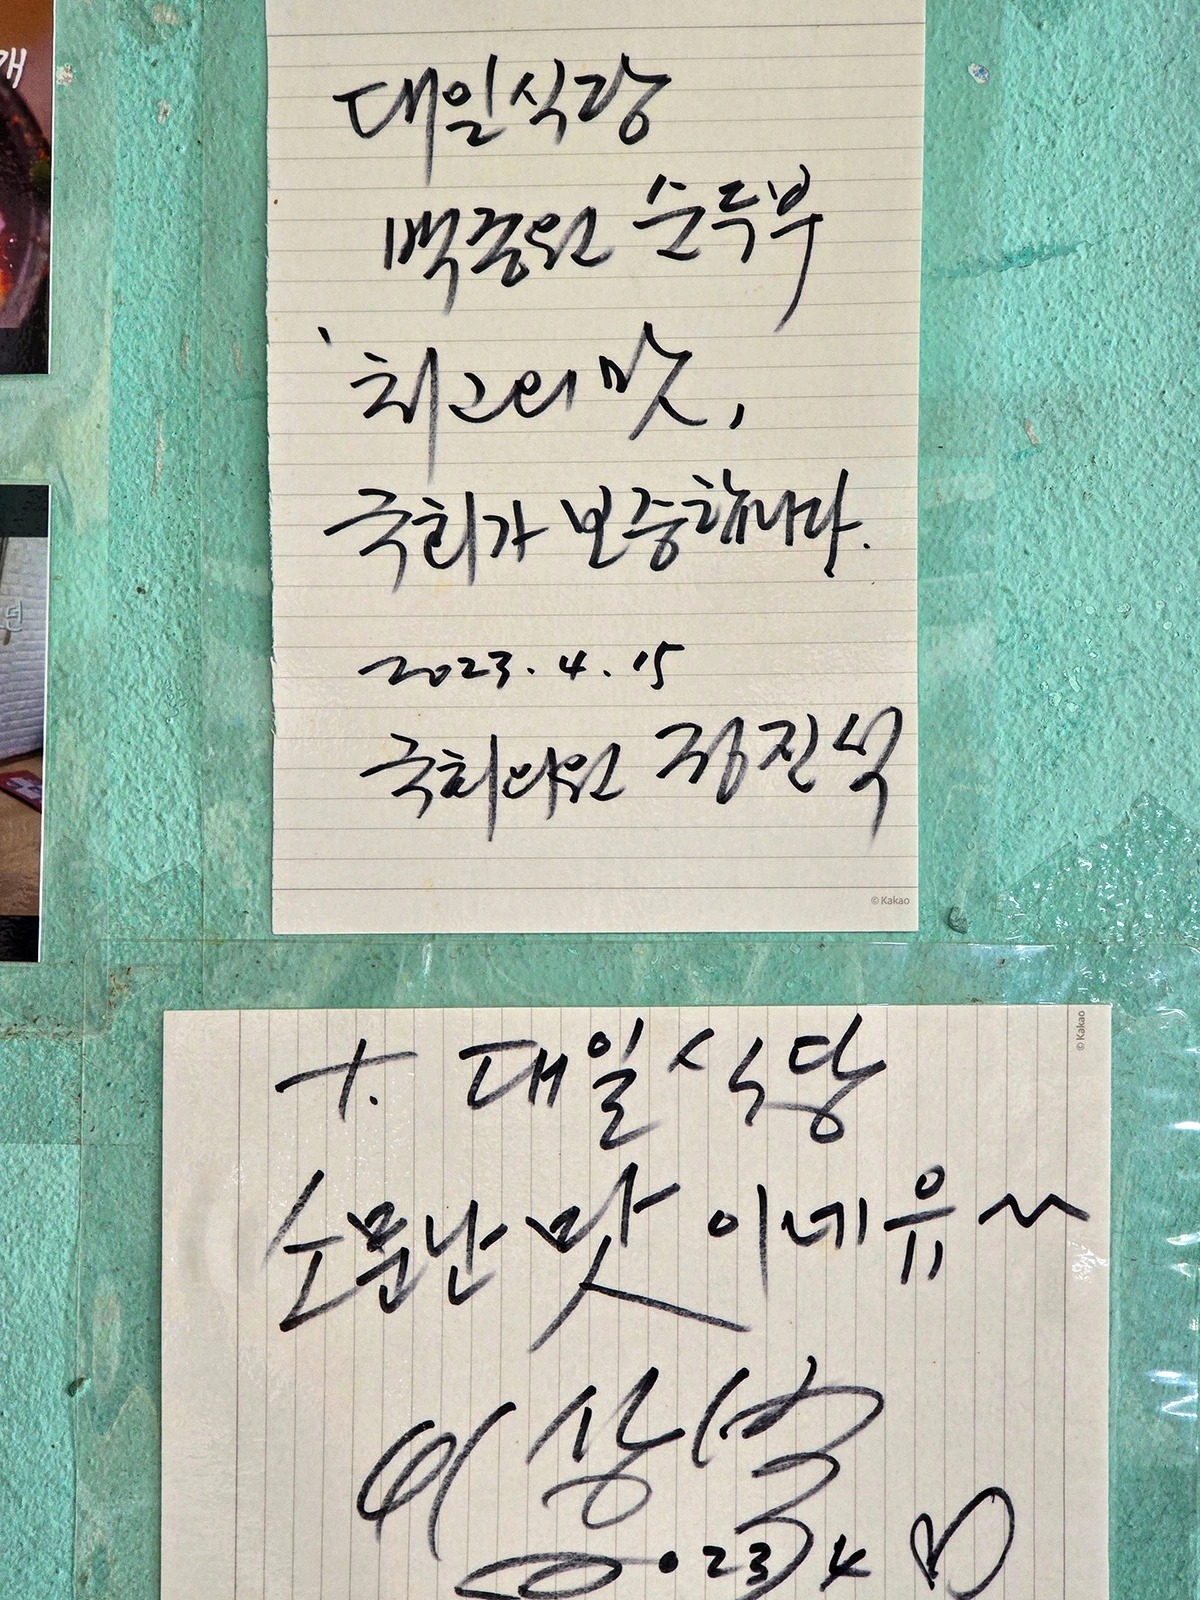 대일식당
백종원 순두부
'최고의 맛,
국회가 보증합니다.
2023. 4. 15
국회의원 정진석
© Kakao
© Kakao
+. 대일식당
소문난 맛이네유~
이상벽
2023 4